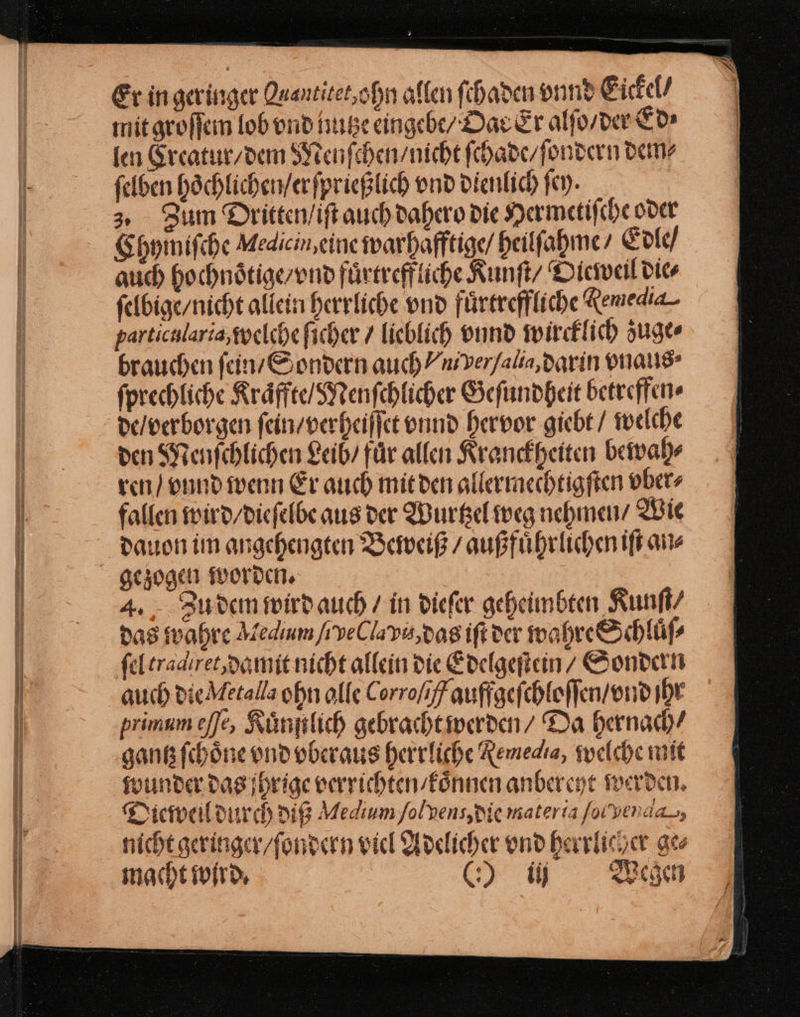 Er in geringer Quantitet, ohn allen ſchaden vnnd Eickel/
mit groſſem lob vnd nutze eingebe/ Das Er alſo/ der Ed⸗
len Creatur/ dem Menſchen/ nicht ſchade/ ſondern dem⸗
ſelben hoͤchlichen/ erſprießlich vnd dienlich ſey.
3. Zum Dritten/ iſt auch dahero die Hermetiſche oder
Chymiſche Medicin, eine warhafftige/ heilſahme/ Edle/
auch hochnoͤtige/ vnd fuͤrtreffliche Kunſt/ Dieweil die⸗
ſelbige/ nicht allein herrliche vnd fuͤrtreffliche Remedia
particularia, welche ſicher / lieblich vnnd wircklich zuge⸗
brauchen ſein/ Sondern auch Vniverſalia, darin vnaus⸗
ſprechliche Kraͤffte/ Menſchlicher Geſundheit betreffen⸗
de/ verborgen ſein/ verheiſſet vnnd hervor giebt / welche
den Menſchlichen Leib/ fuͤr allen Kranckheiten bewah⸗
ren / vnnd wenn Er auch mit den allermechtigſten vber⸗
fallen wird/ dieſelbe aus der Wurtzel weg nehmen/ Wie
dauon im angehengten Beweiß / außfuͤhrlichen iſt an⸗
gezogen worden.
4. Zu dem wird auch / in dieſer geheimbten Kunſt/
das wahre Medium ſive Clavis, das iſt der wahre Schluͤſ⸗
ſel tradiret, damit nicht allein die Edelgeſtein / Sondern
auch die Metalla ohn alle Corroſiff auffgeſchloſſen/ vnd jhr
primum eſſe, Kuͤnſtlich gebracht werden / Da hernach/
gantz ſchoͤne vnd vberaus herrliche Remedia, welche mit
wunder das jhrige verrichten/ koͤnnen anbereyt werden.
Dieweil durch diß Medium ſolvens, die materia ſolvenda,
nicht geringer/ ſondern viel Adelicher vnd herrlicher ge⸗
macht wird.
(:) iij Wegen